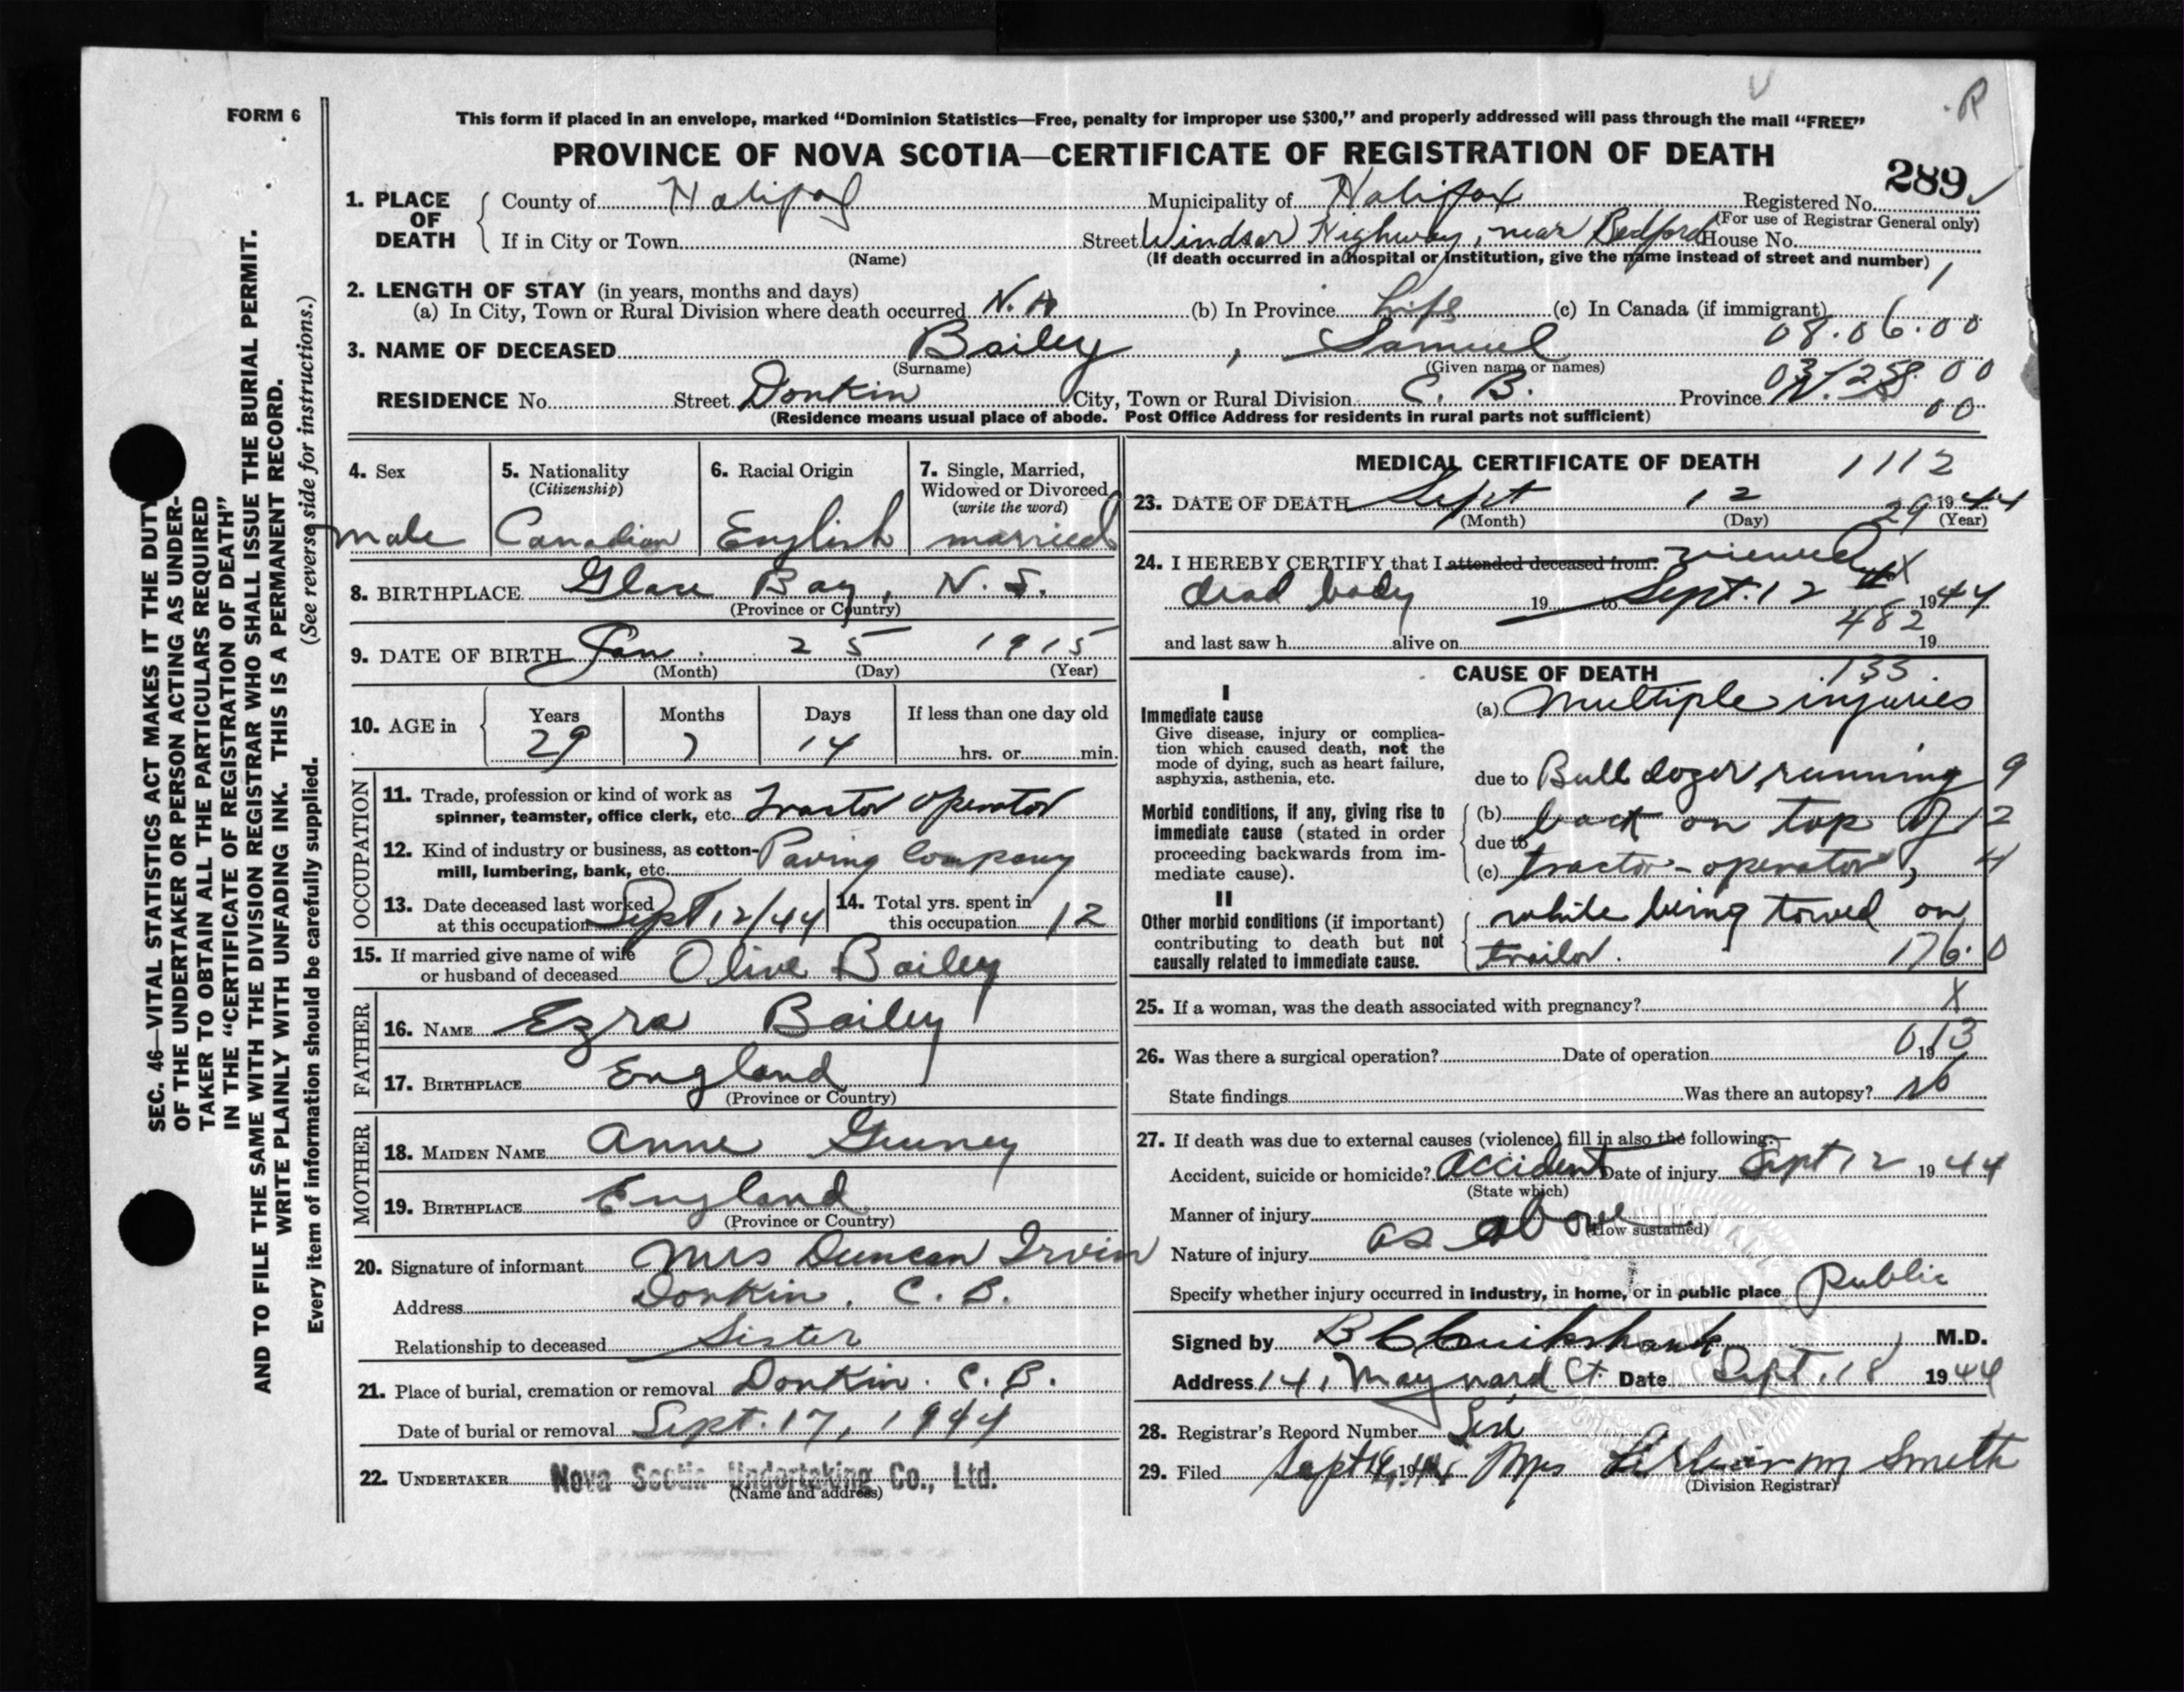 FORM 6
This form if placed in an envelope, marked “Dominion Statistics—Free, penalty for improper use $300,” and properly addressed will pass through the mail “FREE”
PROVINCE OF NOVA SCOTIA—CERTIFICATE OF REGISTRATION OF DEATH
R
289
1. PLACE OF DEATH County of Halifax Municipality of Halifax Registered No.
(For use of Registrar General only)
If in City or Town Street Windsor Highway, near Bedford House No.
(Name) (If death occurred in a hospital or institution, give the name instead of street and number)
1
2. LENGTH OF STAY (in years, months and days)
(a) In City, Town or Rural Division where death occurred N. A (b) In Province Life (c) In Canada (if immigrant)
08.06.00
3. NAME OF DECEASED Bailey, Samuel
(Surname) (Given name or names)
03-258.00
RESIDENCE No. Street Donkin City, Town or Rural Division C. B. Province N. S.
00
(Residence means usual place of abode. Post Office Address for residents in rural parts not sufficient)
4. Sex male
5. Nationality (Citizenship) Canadian
6. Racial Origin English
7. Single, Married, Widowed or Divorced (write the word) married
8. BIRTHPLACE Glace Bay, N. S.
(Province or Country)
9. DATE OF BIRTH Jan. 25 1915
(Month) (Day) (Year)
10. AGE in Years 29 Months 7 Days 14 If less than one day old hrs. or min.
OCCUPATION
11. Trade, profession or kind of work as
spinner, teamster, office clerk, etc. Tractor operator
12. Kind of industry or business, as cotton-
mill, lumbering, bank, etc. Paving Company
13. Date deceased last worked
at this occupation Sept 12/44
14. Total yrs. spent in
this occupation 12
15. If married give name of wife
or husband of deceased Olive Bailey
FATHER
16. NAME Ezra Bailey
17. BIRTHPLACE England
(Province or Country)
MOTHER
18. MAIDEN NAME Anne
19. BIRTHPLACE England
(Province or Country)
20. Signature of informant Mrs Duncan Irvin
Address Donkin. C. B.
Relationship to deceased Sister
21. Place of burial, cremation or removal Donkin. C. B.
Date of burial or removal Sept. 17, 1944
22. UNDERTAKER Nova Scotia Undertaking Co., Ltd.
(Name and address)
MEDICAL CERTIFICATE OF DEATH 1112
23. DATE OF DEATH Sept 12 1944
(Month) (Day) 29 (Year)
24. I HEREBY CERTIFY that I attended deceased from: viewed X
dead body 19 to Sept. 12 1944
482
and last saw h alive on 19
CAUSE OF DEATH 133
I
Immediate cause
Give disease, injury or complica-
tion which caused death, not the
mode of dying, such as heart failure,
asphyxia, asthenia, etc.
(a) Multiple injuries
due to Bull dozer, running 9
Morbid conditions, if any, giving rise to
immediate cause (stated in order
proceeding backwards from im-
mediate cause).
(b) back on top of 12
due to
(c) tractor-operator, 4
II
Other morbid conditions (if important)
contributing to death but not
causally related to immediate cause.
while being towed on
trailor. 176.0
25. If a woman, was the death associated with pregnancy? X
26. Was there a surgical operation? Date of operation 19
013
State findings Was there an autopsy? No
27. If death was due to external causes (violence) fill in also the following:—
Accident, suicide or homicide? Accident Date of injury Sept 12 1944
(State which)
Manner of injury as above
(How sustained)
Nature of injury
Specify whether injury occurred in industry, in home, or in public place Public
Signed by M.D.
Address 14, Maynard St. Date Sept. 18 1944
28. Registrar's Record Number
29. Filed Sept 1944 Mrs Smith
(Division Registrar)
SEC. 46—VITAL STATISTICS ACT MAKES IT THE DUTY
OF THE UNDERTAKER OR PERSON ACTING AS UNDER-
TAKER TO OBTAIN ALL THE PARTICULARS REQUIRED
IN THE “CERTIFICATE OF REGISTRATION OF DEATH”
AND TO FILE THE SAME WITH THE DIVISION REGISTRAR WHO SHALL ISSUE THE BURIAL PERMIT.
WRITE PLAINLY WITH UNFADING INK. THIS IS A PERMANENT RECORD.
Every item of information should be carefully supplied. (See reverse side for instructions.)